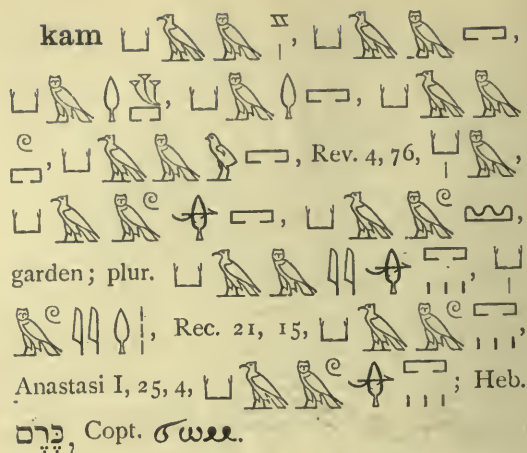 kam 𓂓𓄿𓅓, 𓂓𓄿𓅓𓉐,
𓂓𓅓𓆭, 𓂓𓅓𓆭𓉐, 𓂓𓄿𓅓
𓏲𓉐, 𓂓𓄿𓅓𓅱𓉐, Rev. 4, 76, 𓂓𓏤𓅓,
𓂓𓄿𓅓𓏲𓉐, 𓂓𓄿𓅓𓏲𓈉,
garden; plur. 𓂓𓄿𓅓𓇌𓉐𓏥, 𓂓𓏤
𓅓𓏲𓇌𓆭𓏥, Rec. 21, 15, 𓂓𓄿𓅓𓏲𓉐𓏥,
Anastasi I, 25, 4, 𓂓𓄿𓅓𓏲𓉐𓏥; Heb.
כֶּרֶם, Copt. ϭⲱⲙ.